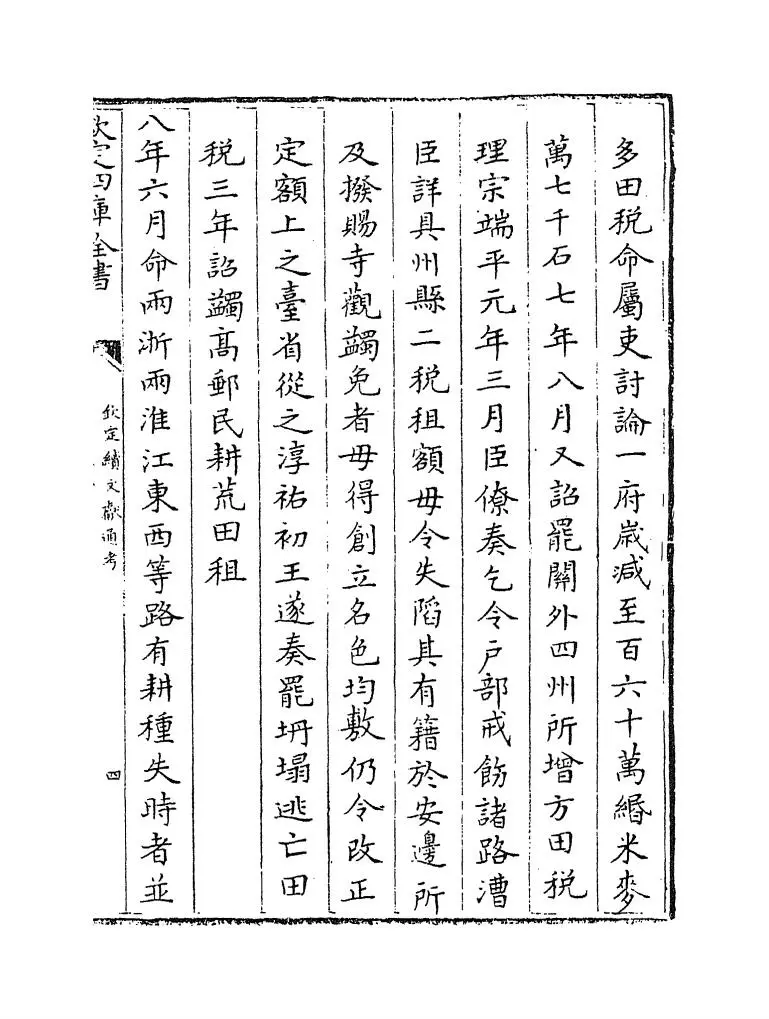 多田税命屬吏討論一府嵗減至百六十萬緡米麥
萬七千石七年八月又詔罷關外四州所增方田税
理宗端平元年三月臣僚奏乞令户部戒飭諸路漕
臣詳具州縣二税租額毋令失䧟其有籍於安邊所
及撥賜寺觀蠲免者毋得創立名色均敷仍令改正
定額上之臺省從之淳祐初王遂奏罷坍塌逃亡田
税三年詔蠲髙郵民耕荒田租
八年六月命兩浙兩淮江東西等路有耕種失時者並
欽定四庫全書
欽定續文獻通考
四